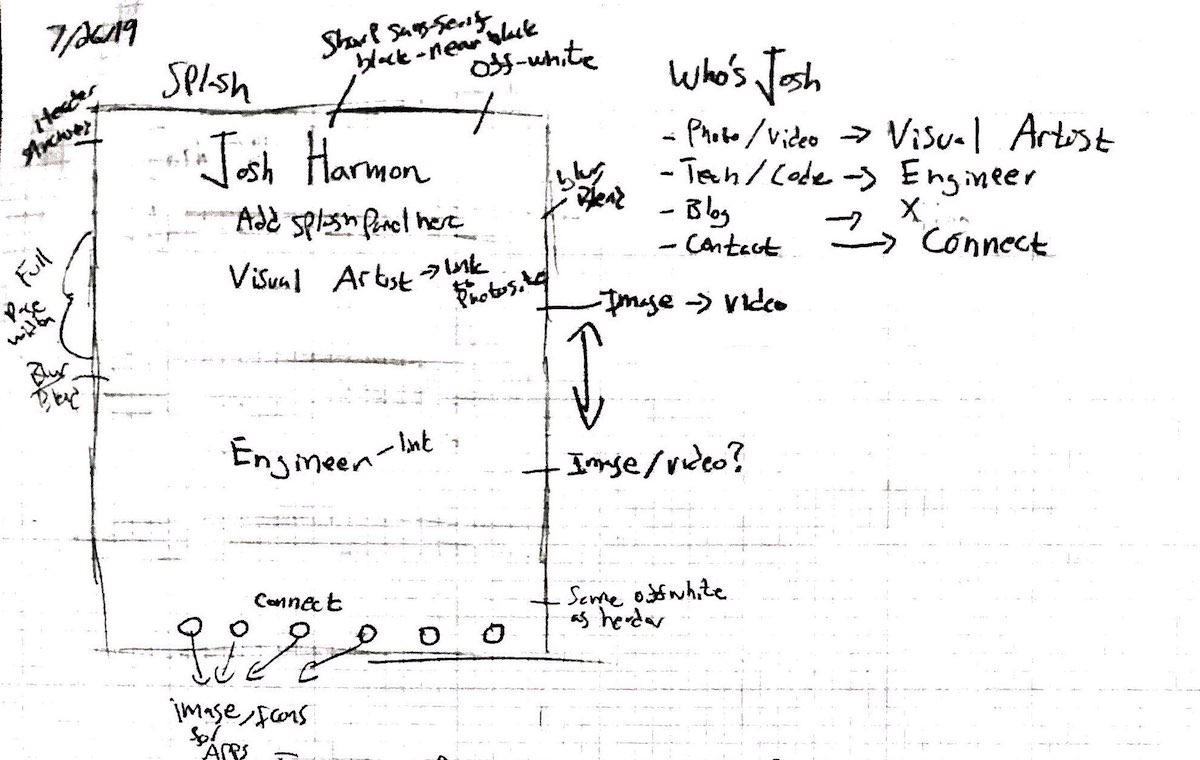 7/26/19
Splash
Sharp sans-serif
black-near black
off-white
Header
Josh Harmon
Add splash panel here
Visual Artist → link
to
Photosite
blur/
Blend
Full
Page
width
Blur
Blend
Image → video
Engineer - link
Image/video?
Connect
Same off white
as header
image/Icons
for
Apps
Who's Josh
- Photo/video → Visual Artist
- Tech/Code → Engineer
- Blog → X
- Contact → Connect